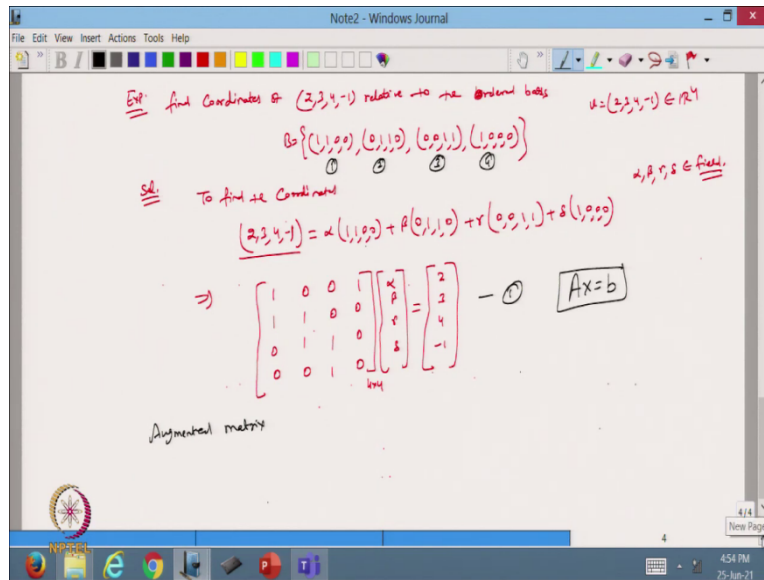 Note2 - Windows Journal
File Edit View Insert Actions Tools Help
Exp: find Coordinates of (2,3,4,-1) relative to te ordered basis u=(2,3,4,-1) ∈ IR4
B={(1,1,0,0), (0,1,1,0), (0,0,1,1), (1,0,0,0)}
① ② ③ ④
Sol. To find te Coordinates α, β, r, δ ∈ field.
(2,3,4,-1) = α(1,1,0,0) + β(0,1,1,0) + r(0,0,1,1) + δ(1,0,0,0)
⇒ [1 0 0 1] [α] = [2] - ① Ax=b
[1 1 0 0] [β] [3]
[0 1 1 0] [r] [4]
[0 0 1 0] [δ] [-1]
4x4
Augmented matrix
NPTEL
4/4
New Page
4
4:54 PM
25-Jun-21